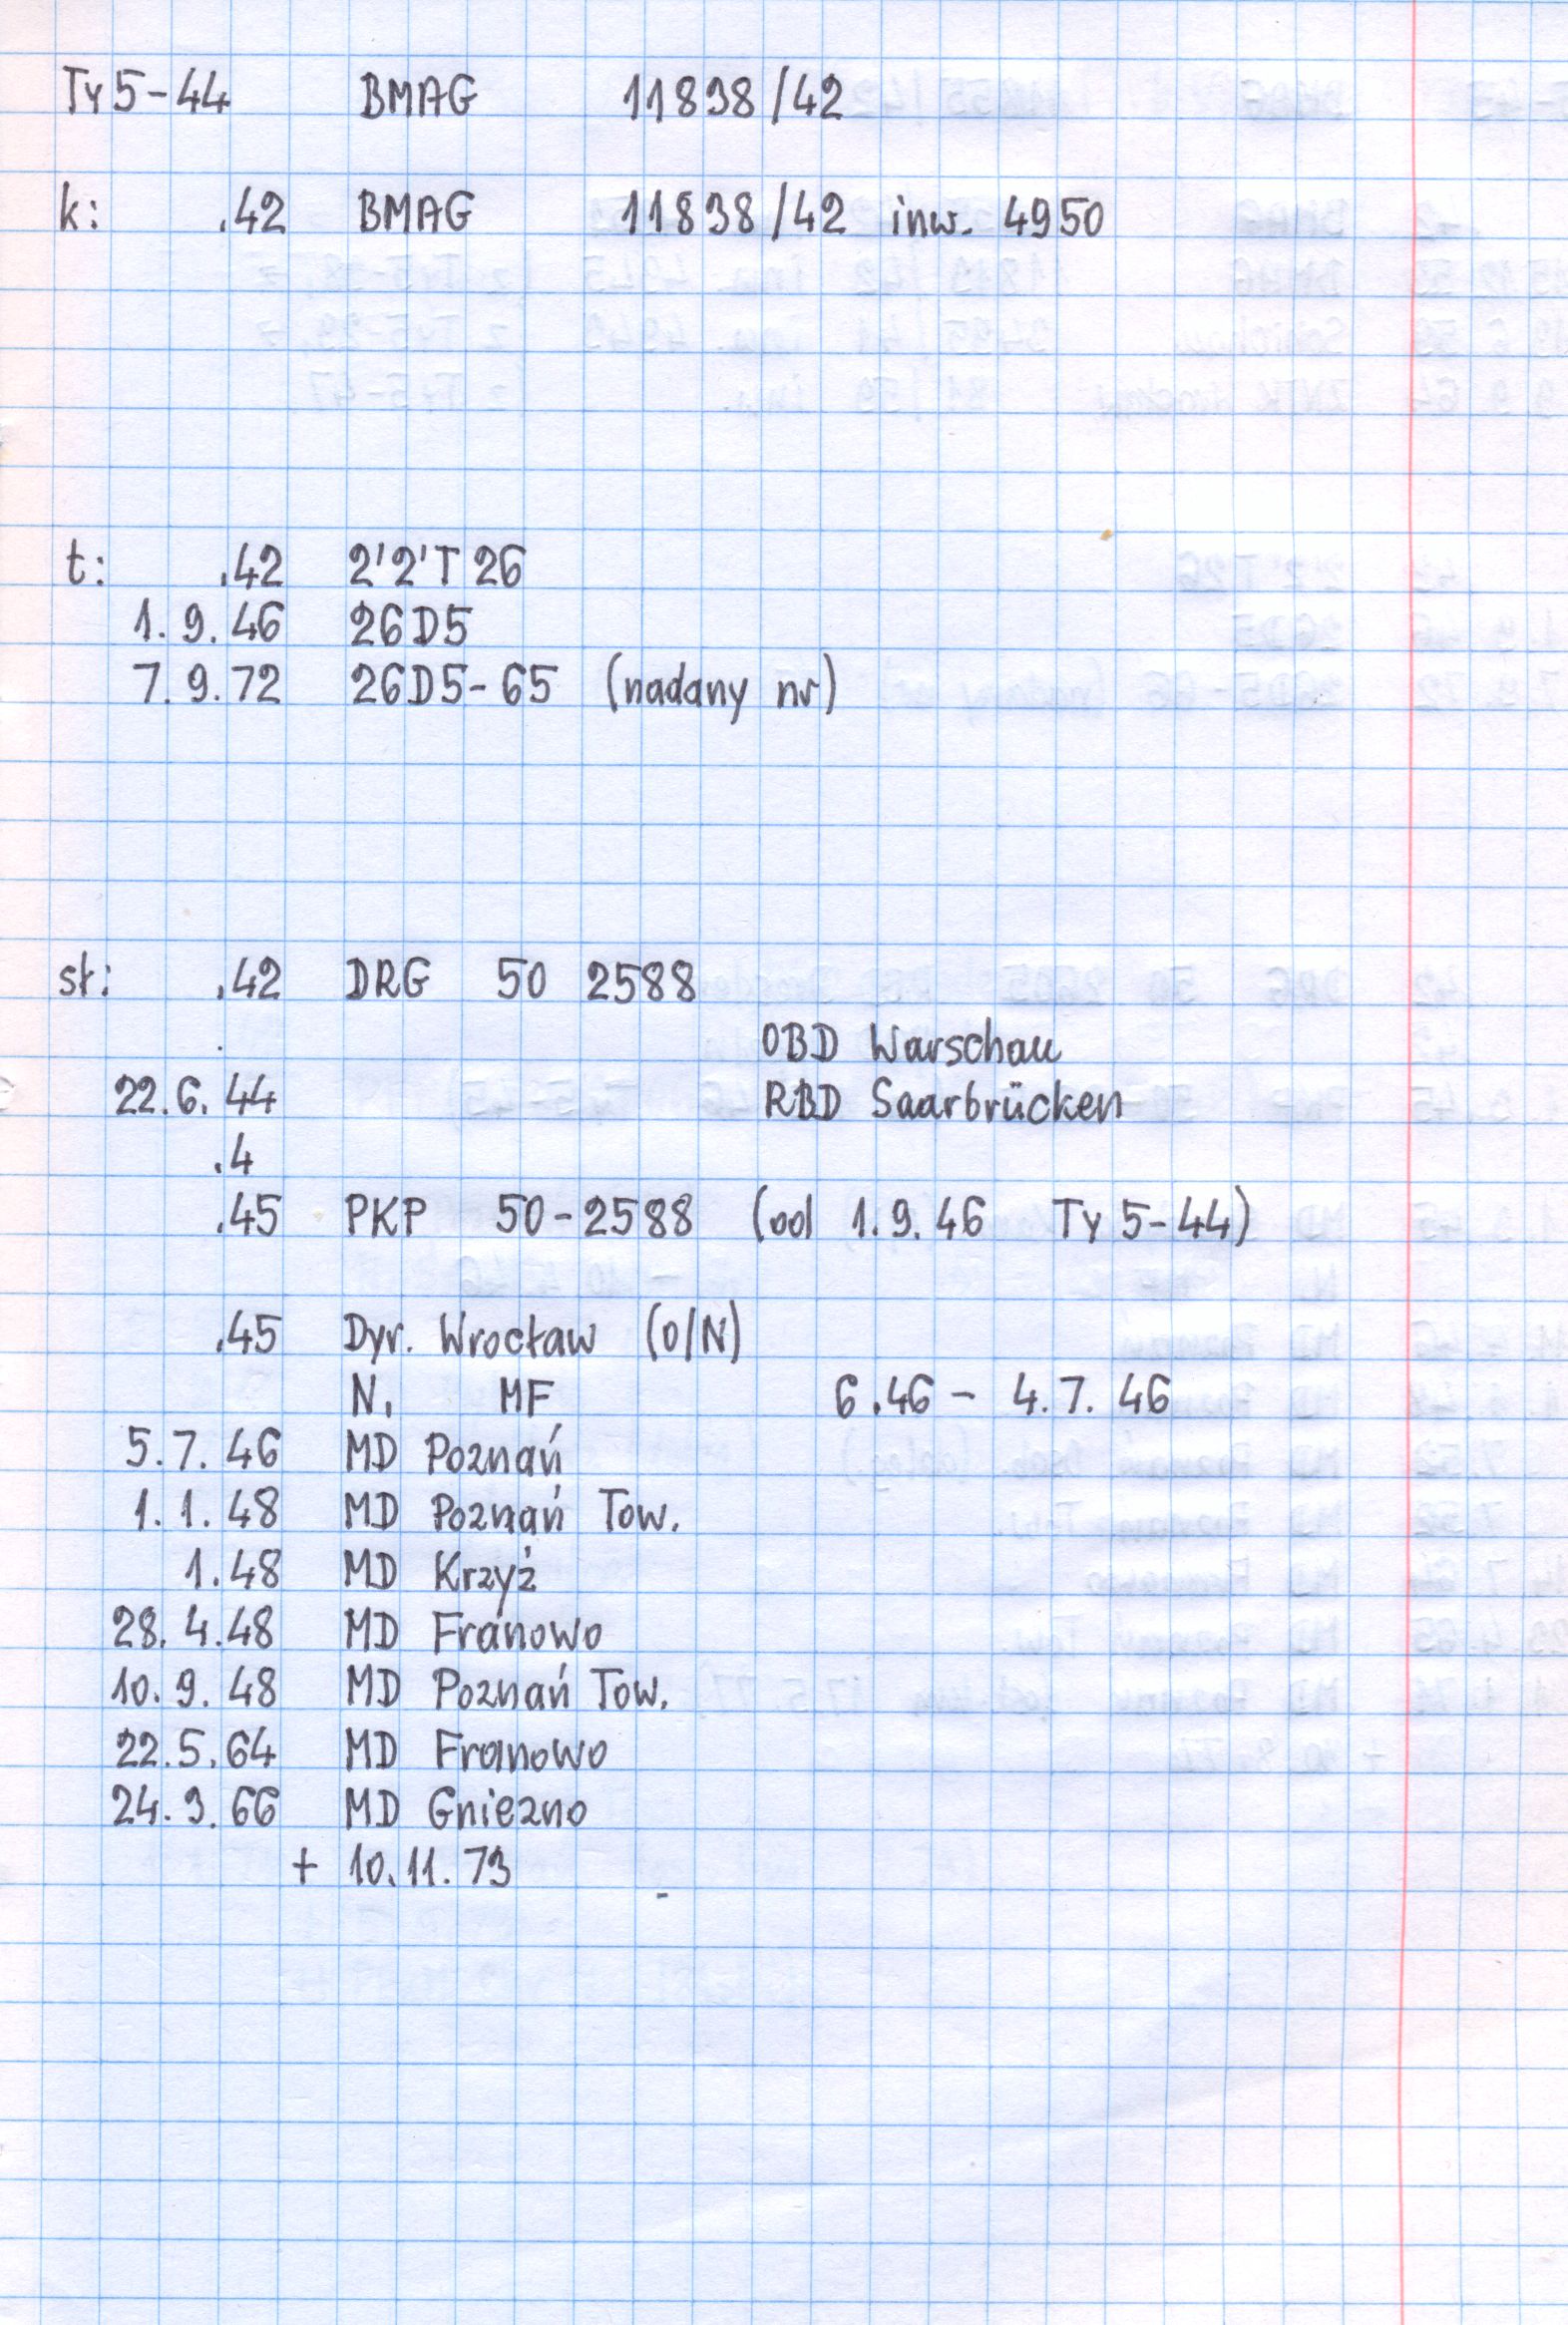 Ty 5-44 BMAG 11838/42
k: .42 BMAG 11838/42 inw. 4950
t: .42 2'2'T 26
1.9.46 26D5
7.9.72 26D5-65 (nadany nr)
st: .42 DRG 50 2588
. OBD Warschau
22.6.44 RBD Saarbrücken
.4
.45 PKP 50-2588 (od 1.9.46 Ty 5-44)
.45 Dyr. Wrocław (O/N)
N. MF 6.46 - 4.7.46
5.7.46 MD Poznań
1.1.48 MD Poznań Tow.
1.48 MD Krzyż
28.4.48 MD Franowo
10.9.48 MD Poznań Tow.
22.5.64 MD Franowo
24.9.66 MD Gniezno
+ 10.11.73